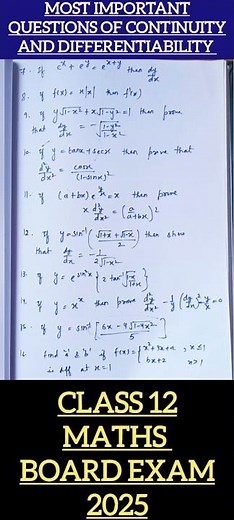 MOST IMPORTANT
QUESTIONS OF CONTINUITY
AND DIFFERENTIABILITY
7. If e^x + e^y = e^(x+y) then dy/dx
8. If f(x) = x|x| then f'(x)
9. If y√(1-x²) + x√(1-y²) = 1 then prove
that dy/dx = -√((1-y²)/(1-x²))
10. If y = tanx + secx then prove that
d²y/dx² = cosx/(1-sinx)²
11. If (a+bx) e^(y/x) = x then prove
x d²y/dx² = (a/(a+bx))²
12. If y = sin⁻¹((√(1+x) + √(1-x))/2) then show
that dy/dx = -1/(2√(1-x²))
13. If y = e^(sin²x) {2 tan⁻¹√((1-x)/(1+x))}
14. If y = x^x then prove d²y/dx² - 1/y (dy/dx)² - y/x = 0
15. If y = sin⁻¹[(6x - 4√(1-4x²))/5]
16. find 'a' & 'b' if f(x) = { x²+3x+a , x≤1
bx+2 , x>1
is diff at x=1
CLASS 12
MATHS
BOARD EXAM
2025